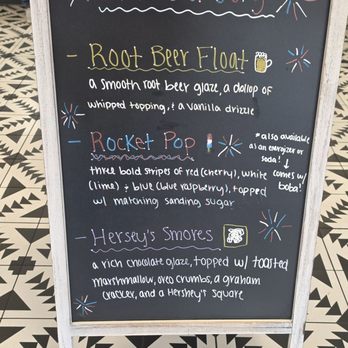 - Root Beer Float
a smooth root beer glaze, a dallop of
whipped topping, & a vanilla drizzle
- Rocket Pop
* also available
as an energizer or
soda!
comes w/
boba!
three bold stripes of red (cherry), white
(lime) + blue (blue raspberry), topped
w/ matching sanding sugar
- Hersey's Smores
a rich chocolate glaze, topped w/ toasted
marshmallow, oreo crumbs, a graham
cracker, and a Hershey's square